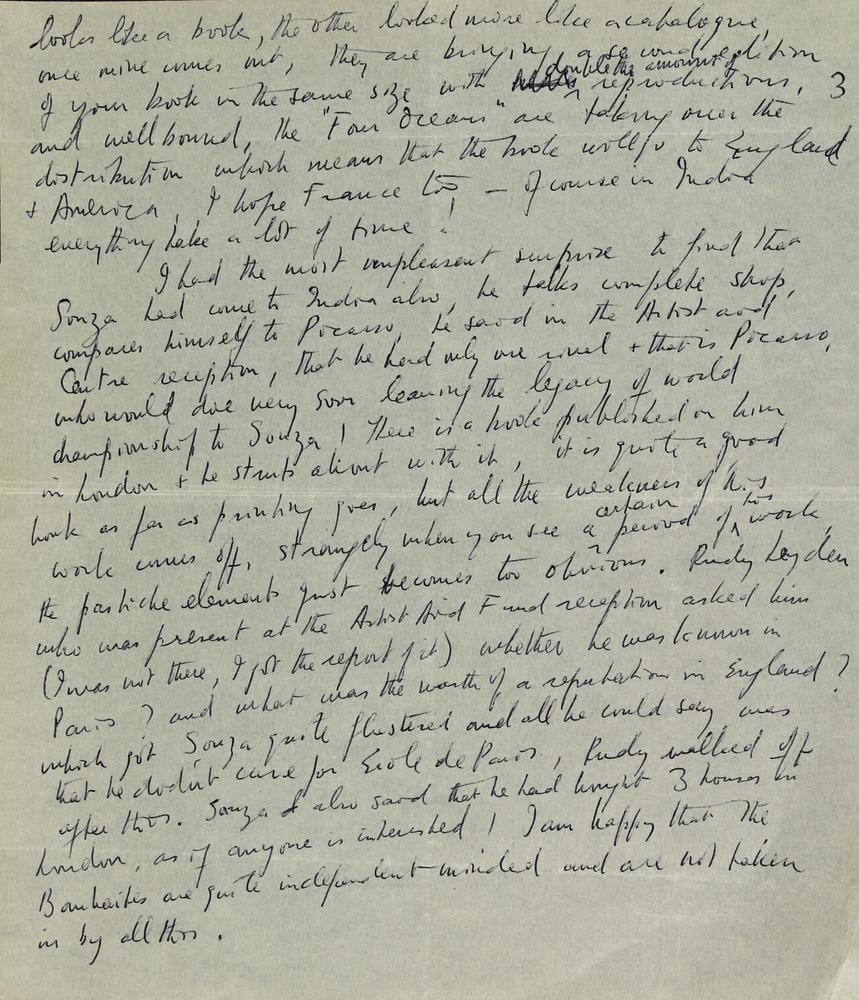 looks like a book, the other looked more like a catalogue,
once mine comes out, they are bringing a second edition
of your book in the same size with double the amount of reproductions, 3
and well bound, the "Four Oceans" are taking over the
distribution which means that the book will go to England
+ America, I hope France too — of course in India
everything take a lot of time !
I had the most unpleasant surprise to find that
Souza had come to India also, he talks complete shop,
compares himself to Picasso, he said in the Artist aid
Centre reception, that he had only one rival + that is Picasso,
who would die very soon leaving the legacy of world
championship to Souza ! There is a book published on him
in London + he struts about with it, it is quite a good
book as far as printing goes, but all the weakness of his
work comes off, strangely when you see a certain period of his work,
the pastiche elements just becomes too obvious. Rudy Leyden
who was present at the Artist Aid Fund reception asked him
(I was not there, I got the report of it) whether he was known in
Paris ? and what was the worth of a reputation in England ?
which got Souza quite flustered and all he could say was
that he didn't care for Ecole de Paris, Rudy walked off
after this. Souza also said that he had bought 3 houses in
London, as if anyone is interested ! I am happy that the
Bombaites are quite independent-minded and are not taken
in by all this.